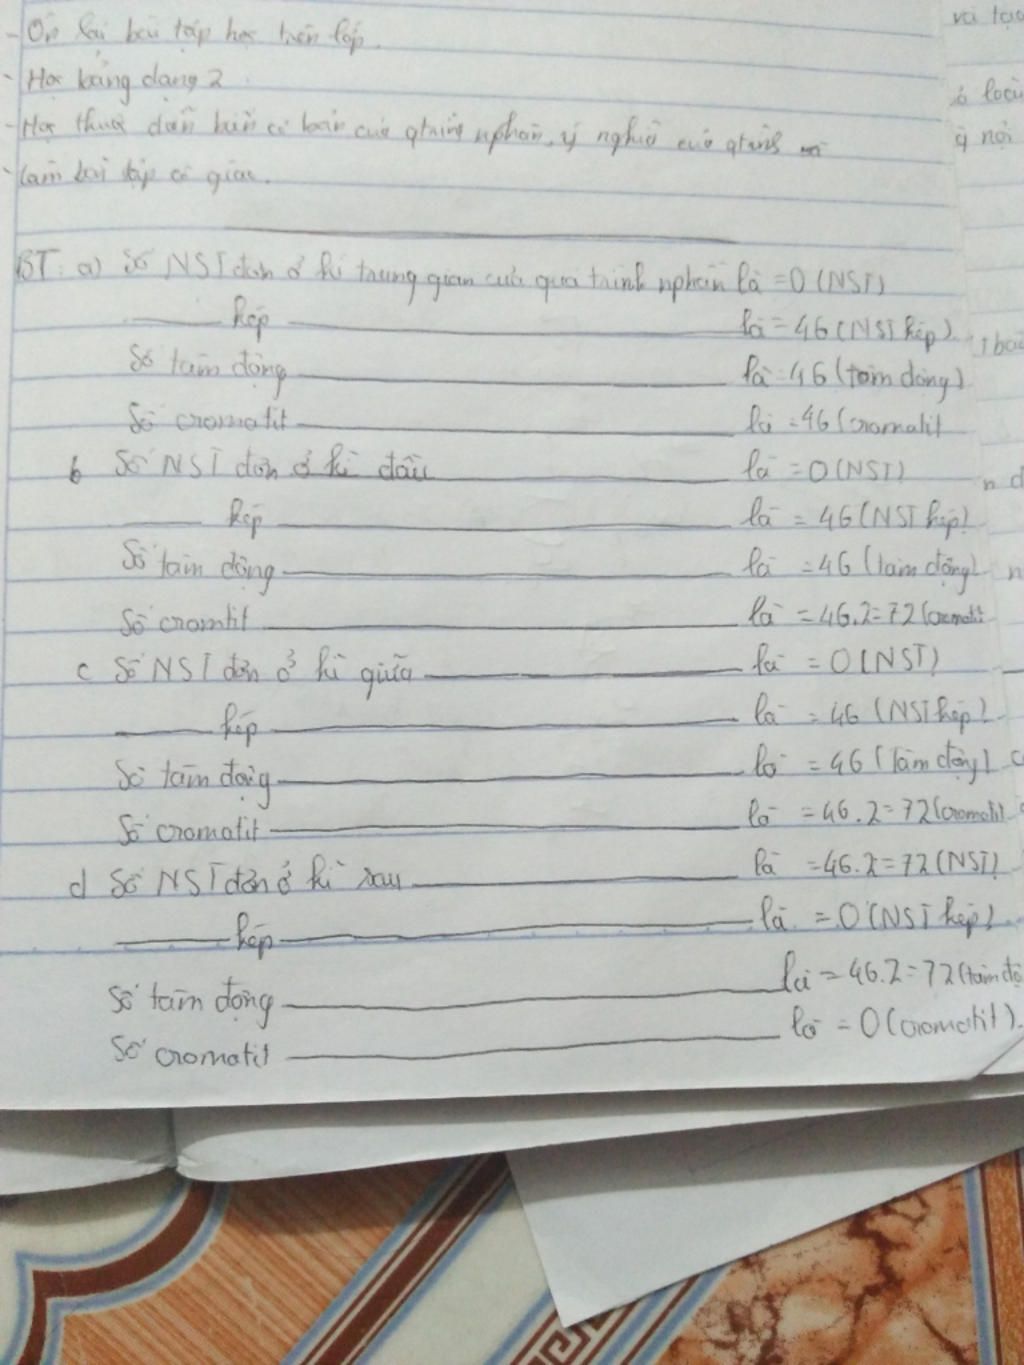 - Ôn lại bài tập học trên lớp.
- Học bảng dạng 2
- Học thuộc diễn biến cơ bản của qtrình nphân, ý nghĩa của qtrình
- Làm bài tập cô giao.
BT: a) Số NST đơn ở kì trung gian của quá trình nphân là = 0 (NST)
kép là = 46 (NST kép)
Số tâm động là = 46 (tâm động)
Số cromatit là = 46 (cromatit
b Số NST đơn ở kì đầu là = 0 (NST)
kép là = 46 (NST kép)
Số tâm động là = 46 (tâm động)
Số cromtit là = 46.2 = 72 (cromatit
c Số NST đơn ở kì giữa là = 0 (NST)
kép là = 46 (NST kép)
Số tâm động là = 46 (tâm động)
Số cromatit là = 46.2 = 72 (cromatit
d Số NST đơn ở kì sau là = 46.2 = 72 (NST)
kép là = 0 (NST kép)
Số tâm động là = 46.2 = 72 (tâm độ
Số cromatit là = 0 (cromatit).